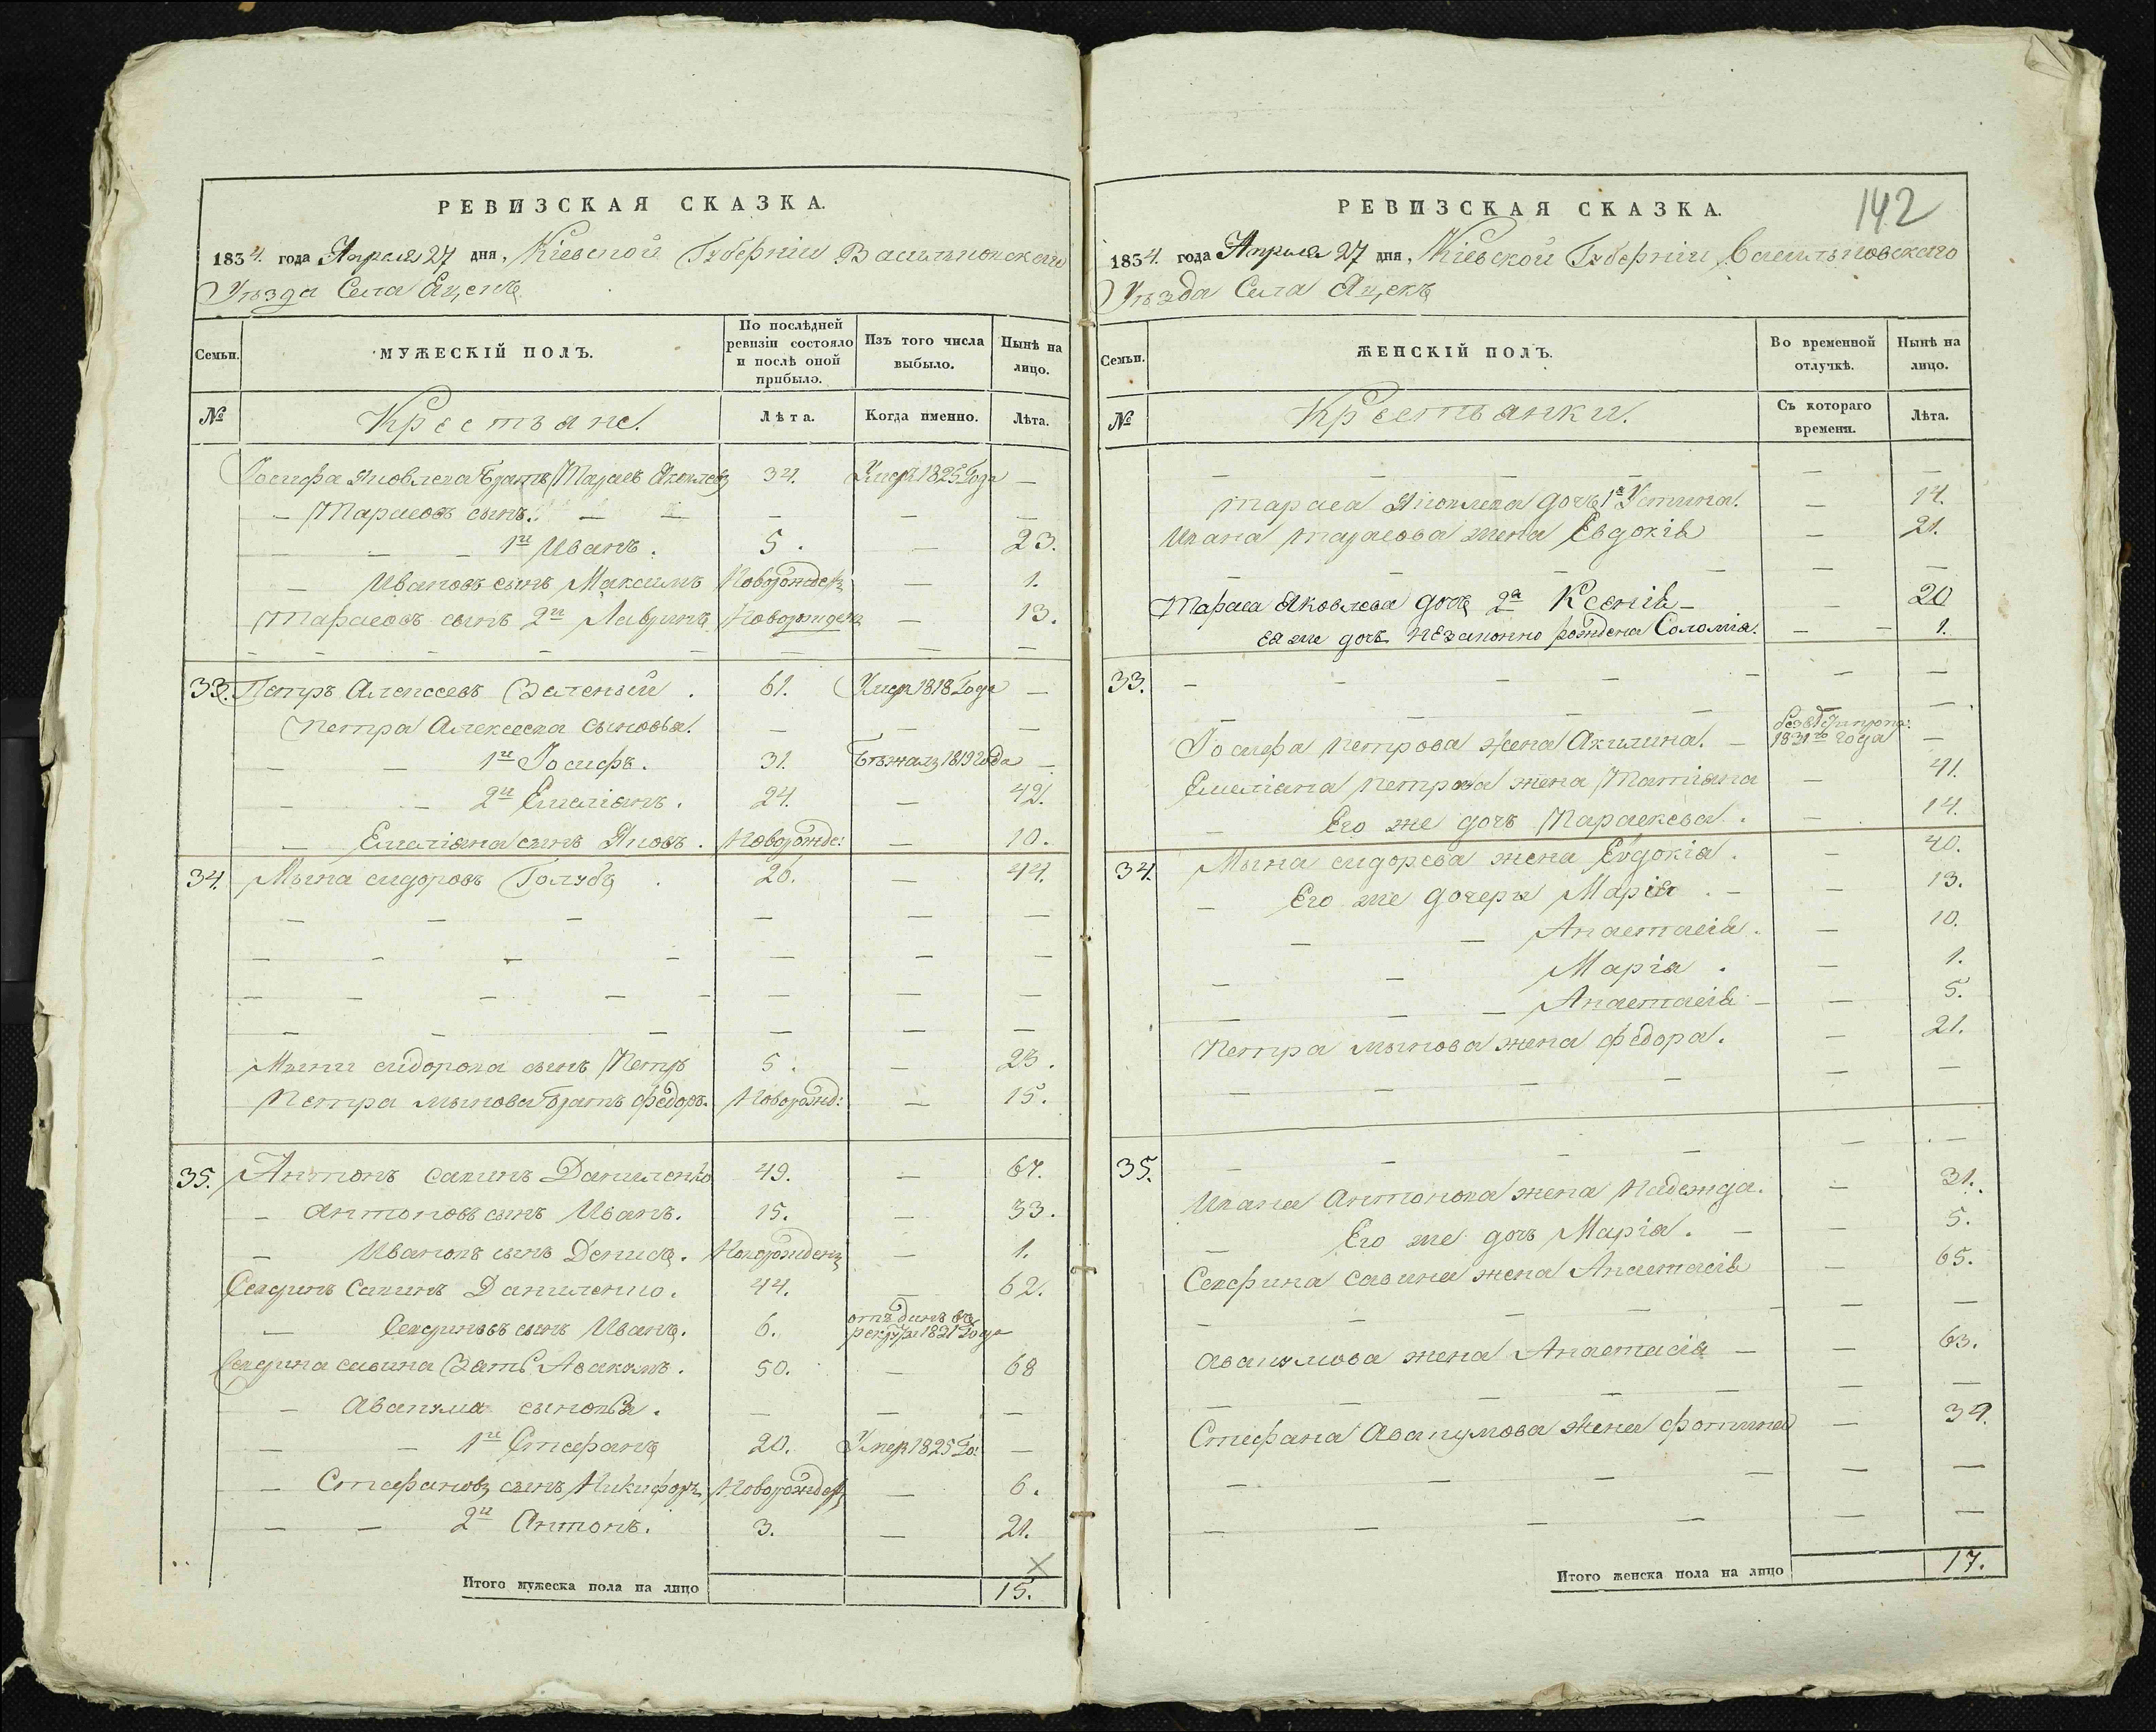 РЕВИЗСКАЯ СКАЗКА.
1834. года Апреля 27 дня, Кіевской Губерніи Васильковскаго
Уѣзда Села Яцекъ
Семьи.
МУЖЕСКІЙ ПОЛЪ.
По послѣдней ревизіи состояло и послѣ оной прибыло.
Изъ того числа выбыло.
Нынѣ на лицо.
№
Крестьяне.
Лѣта.
Когда именно.
Лѣта.
Іосифа Яковлева братъ Тарасъ Яковлевъ 34. Умеръ 1825 Года —
— Тарасовъ сынъ. — — — — —
— — — 1й Иванъ. 5. — 23.
— Ивановъ сынъ Максимъ Новорожденъ — 1.
Тарасовъ сынъ 2й Лавринъ Новорожденъ — 13.
— — — — — — — —
33. Петръ Алексеевъ Зеленый. 61. Умеръ 1818 Года —
Петра Алексеева сыновья. — — —
— — 1й Іосифъ. 31. Бѣжалъ 1819 года —
— — 2й Емеліанъ. 24. — 42.
— Емеліана сынъ Яковъ. Новорожде: — 10.
34. Мына сидоровъ Голубъ. 26. — 44.
— — — — — — —
— — — — — — —
— — — — — — — —
— — — — — —
Мыны сидорова сынъ Петръ 5. — 23.
Петра мынова братъ Федоръ. Новорожд: — 15.
35. Антонъ савинъ Даниленко 49. — 67.
— Антоновъ сынъ Иванъ. 15. — 33.
— Ивановъ сынъ Денисъ. Новорожденъ — 1.
Северинъ Савинъ Даниленко. 44. — 62.
— Севериновъ сынъ Иванъ. 6. отъданъ въ рекруты 1821 Года
Северина савина Зать Авакумъ. 50. — 68
— Авакума сыновья. — — —
— — 1й Стефанъ 20. Умеръ 1825 Го: —
— Стефановъ сынъ Никифоръ Новорожденъ — 6.
— — 2й Антонъ. 3. — 21.
Итого мужеска пола на лицо 15.
142
РЕВИЗСКАЯ СКАЗКА.
1834. года Апреля 27 дня, Кіевской Губерніи Васильковскаго
Уѣзда Села Яцекъ
Семьи.
ЖЕНСКІЙ ПОЛЪ.
Во временной отлучкѣ.
Нынѣ на лицо.
№
Крестьянки.
Съ котораго времени.
Лѣта.
— — — — — —
Тараса Яковлева дочь 1я Устина. — 14.
Ивана тарасова жена Евдокія — 21.
— — — — — —
Тараса Яковлева дочь 2я Ксенія — — 20
Ея же дочь незаконно рождена Соломія. — — 1.
33. — — — — — —
— — — — —
Іосифа петрова жена Акилина. — 1831го года —
Емеліана петрова жена Татіана — 41.
— Его же дочь Параскева. — 14.
34. Мына сидорова жена Евдокія. — 40.
— Его же дочеры Марія. — — 13.
— — Анастасія. — 10.
— — Марія. — 1.
— — — Анастасія — — 5.
Петра мынова жена федора. — 21.
— — — — — —
35. — — — — —
Ивана Антонова жена Надежда. — 31.
— Его же дочь Марія. — — 5.
Северина савина жена Анастасія — 65.
— — — — — — —
Авакумова жена Анастасія — — 63.
— — — — — —
Стефана Авакумова жена фотина — 39.
— — — — — —
— — — — — —
Итого женска пола на лицо 17.